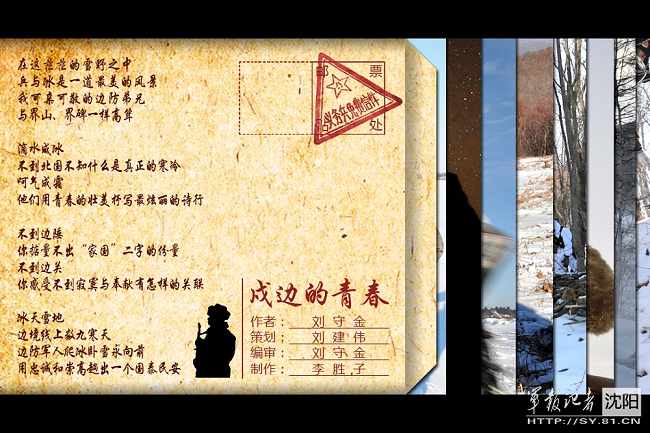 在这茫茫的雪野之中
兵与冰是一道最美的风景
我可亲可敬的边防弟兄
与界山、界碑一样高耸
滴水成冰
不到北国不知什么是真正的寒冷
呵气成霜
他们用青春的壮美抒写最炫丽的诗行
不到边陲
你掂量不出“家国”二字的份量
不到边关
你感受不到寂寞与奉献有怎样的关联
冰天雪地
边境线上数九寒天
边防军人爬冰卧雪永向前
用忠诚和崇高趟出一个国泰民安
邮 票
义务兵免费信件
处
戍边的青春
作者： 刘 守 金
策划； 刘 建 伟
编审： 刘 守 金
制作： 李 胜 子
军报记者 沈阳
HTTP://SY.81.CN